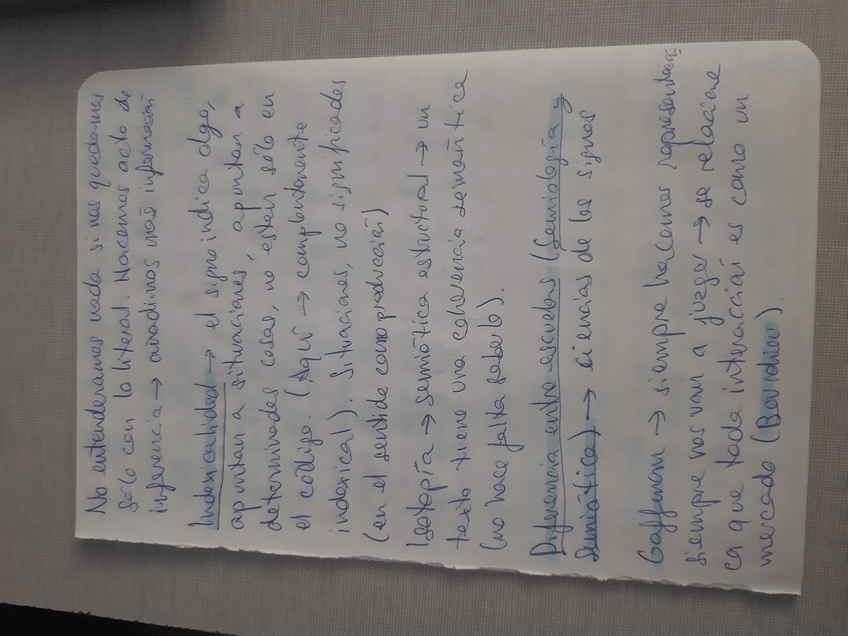 No entenderamos nada si nos quedamos
sólo con lo literal. Hacemos acto de
inferencia → anadimos más información
Indexicalidad → el signo indica algo,
apuntan a situaciones, apuntan a
determinadas cosas, no están sólo en
el código. (Aquí → completamente
indexical). Situaciones, no significados
(en el sentido como producción)
Isotopía → semiótica estructural → un
texto tiene una coherencia semántica
(no hace falta saberlo).
Diferencia entre escuelas (Semiología y
Semiótica) → ciencias de los signos
Goffman → siempre hacemos representación.
siempre nos van a juzgar → se relaciona
ca que toda interacción es como un
mercado (Bourdieu).